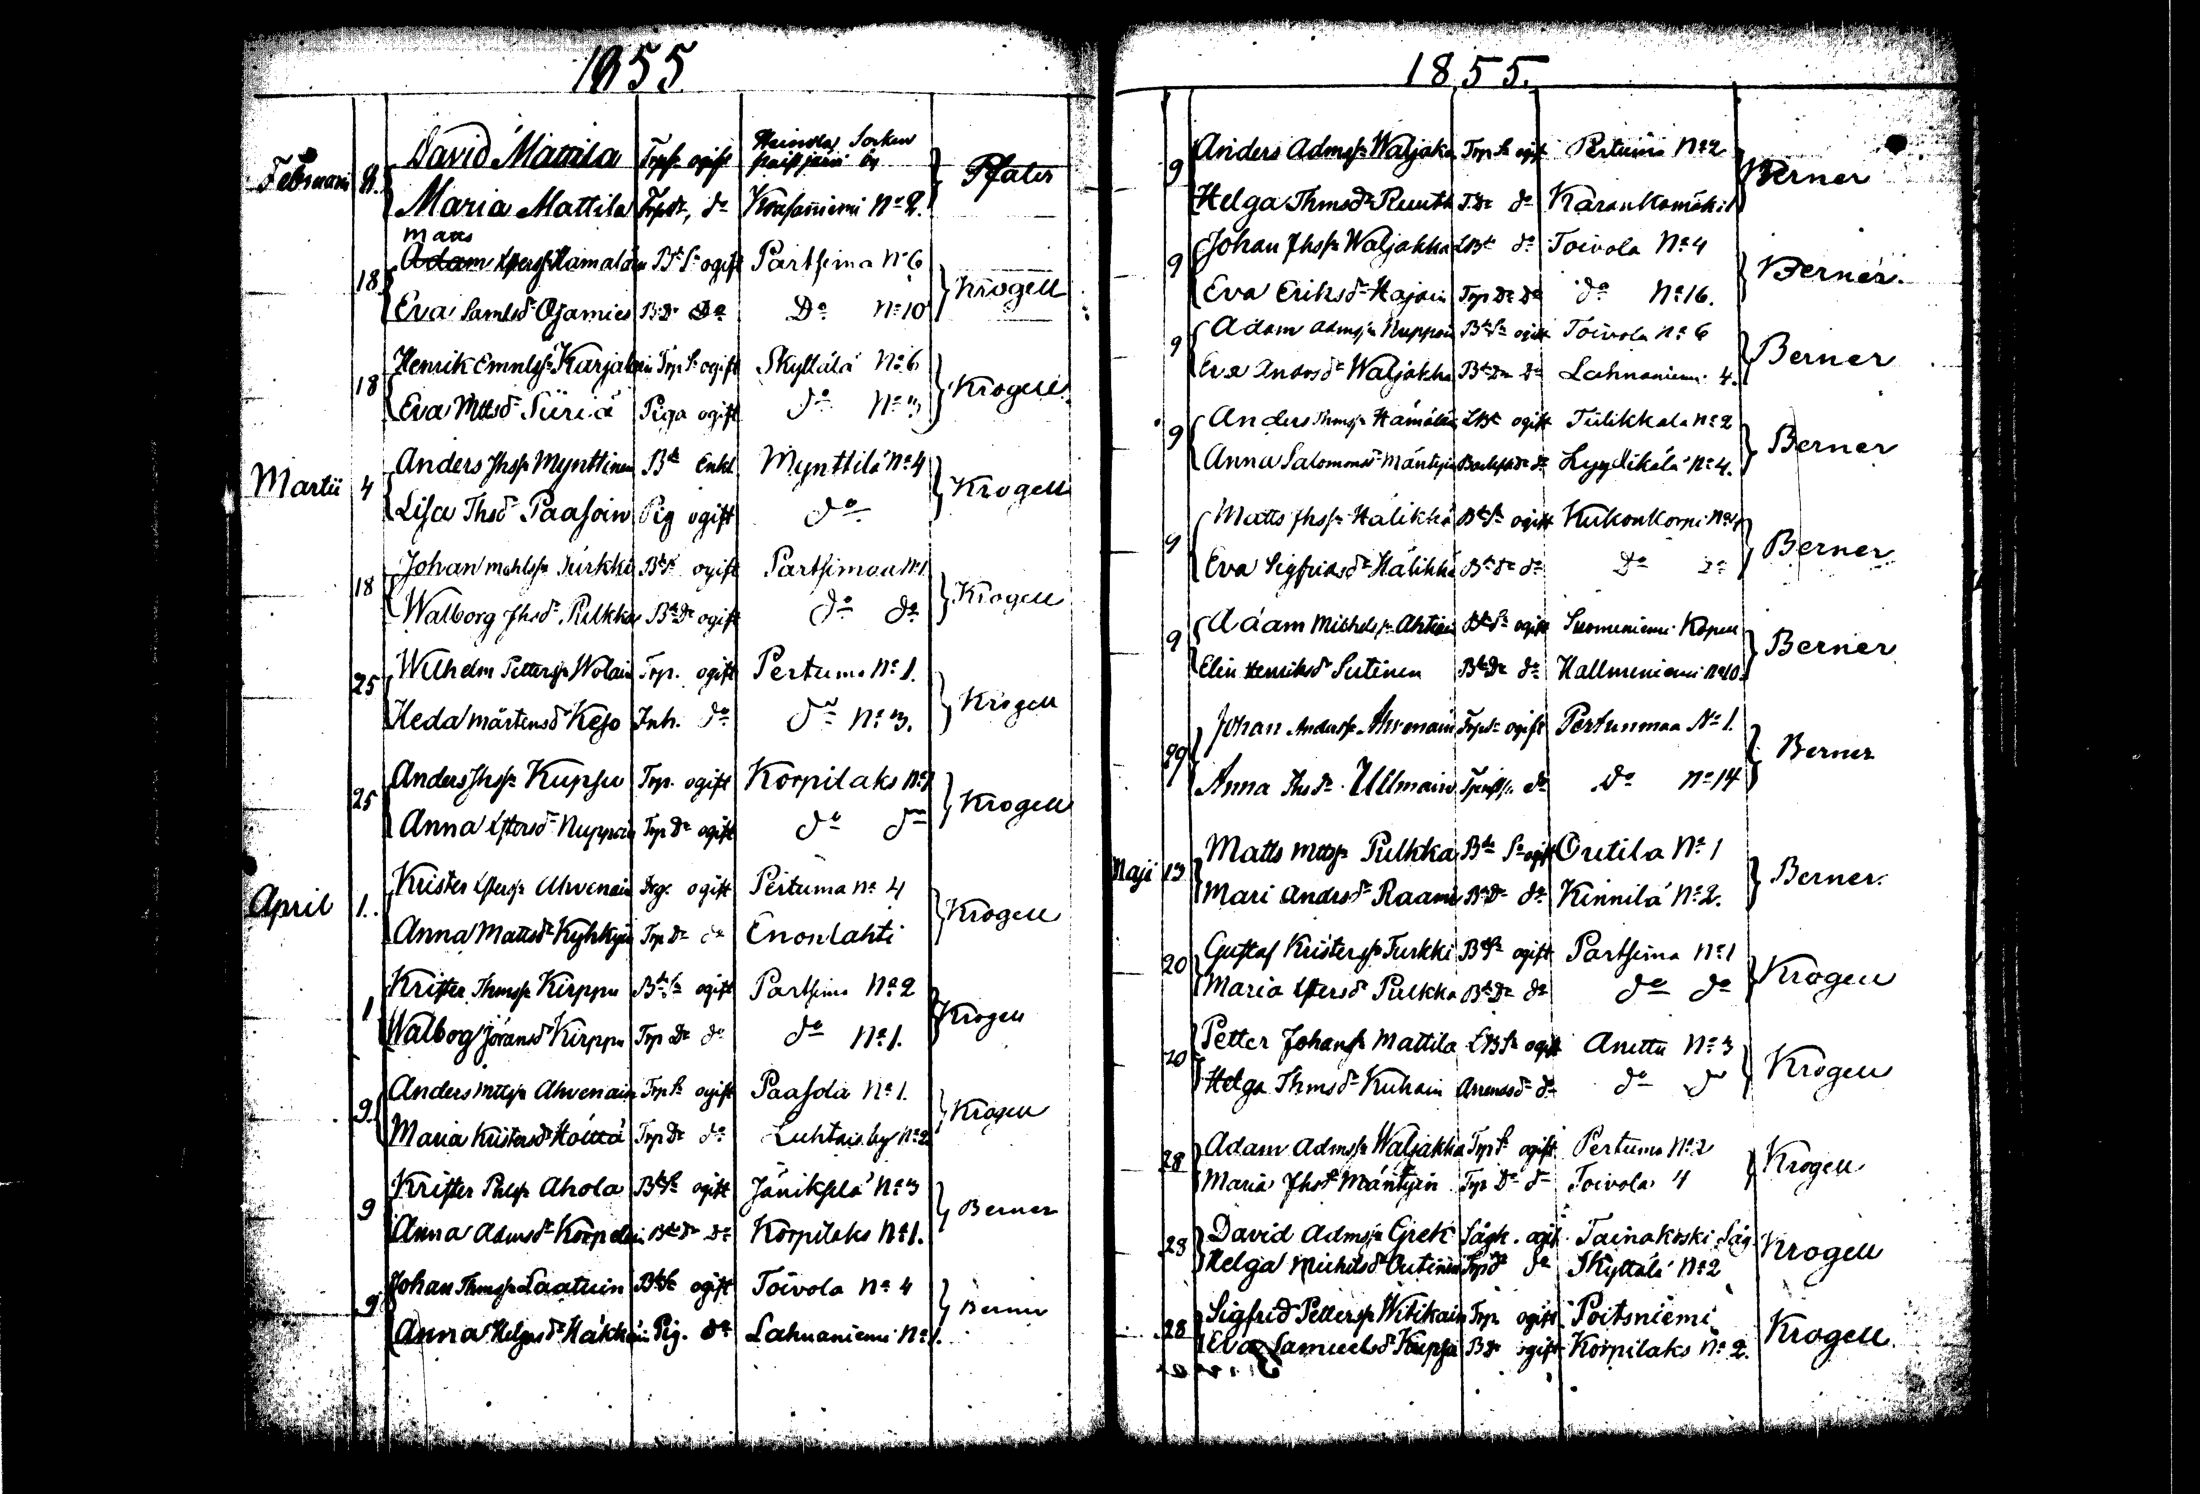 1855
Februarii 11. David Mattila Trp S. ogift Heinola Socken
Pfaler
Maria Mattila Trp Dr, do Kovasaniemi No 2.
Matts
18 Adam Hämäläin Bd S. ogift Partsima No 6
Krogell
Eva Samlsdr Ojamies B.Dr Do Do No 10
18 Henrik Emnlss Karjalain Trp S. ogift Skyttälä No 6
Krogell
Eva Mttsdr Siiriä Piga ogift do No 3
Martii 4 Anders Jhss Mynttinen Bde Enkl. Mynttilä No 4
Krogell
Lisa Thsdr Paasoin Pig ogift do
18 Johan Mchlss Turkki Bde S. ogift Partsimaa No 1
Krogell
Walborg Jhsdr Pulkka Bde Dr ogift do do
25 Wilhelm Petterss Wolain Trp. ogift Pertuma No 1.
Krogell
Heda Mårtensdr Keso Inh. do do No 3.
25 Anders Jhss Kupsu Trp. ogift Korpilaks No 1
Krogell
Anna Nuppoin Trp Dr ogift do do
April 1. Krister Ahvenain ogift Pertuma No 4
Krogell
Anna Mattsdr Kyhkyin Trp Dr do Enonlahti
1 Krister Thmss Kirppu Bde S. ogift Partsima No 2
Krogell
Walbog Jöransdr Kirppu Trp Dr do do No 1.
9. Anders Mttss Ahvenain Trp S. ogift Paasola No 1.
Krogell
Maria Kristersdr Höittä Trp Dr do Luhtais. by No 2
9 Krister Phlss Ahola Bde S. ogift Jänikselä No 3
Berner
Anna Admsdr Korpelain Bde Dr Do Korpilaks No 1.
9 Johan Thmss Laatuin Bde S. ogift Toivola No 4
Berner
Anna Helgsdr Häkkäin Pig. do Lahnaniemi No 1.
1855.
9 Anders Admss Waljaka Trp S. ogift Pertuma No 2
Berner
Helga Thmsdr Ruuth T.Dr do Karankamäki 1
9 Johan Jhss Waljakka LBde do Toivola No 4
Berner.
Eva Eriksdr Hajain Trp Dr Do do No 16.
9 Adam Admss Nuppoin Bde S. ogift Toivola No 6
Berner
Eva Andrsdr Waljakka Bde Dr Do Lahnaniemi 4.
9 Anders Thmss Hämäläin LBde ogift Tiilikkala No 2
Berner
Anna Salomonsdr Mäntyin do Lyydikälä No 4.
9 Matts Jhss Hälikkä Bde S. ogift Kukonkorpi No 1
Berner
Eva Sigfridsdr Hälikkä Bde Dr do Do Do
9 Adam Michelss Ahtiain Bde S. ogift Suomeniemi Kapell
Berner
Elin Henriksdr Sutinen Bde Dr do Hallmeniemi No 10.
29 Johan Anderss Ahvenain Trp S. ogift Pertunmaa No 1.
Berner
Anna Jhsdr Ullmain do Do No 14
Maji 13 Matts Mttss Pulkka Bde S. ogift Outila No 1
Berner.
Mari Andrsdr Raami Bde Dr do Kinnilä No 2.
20 Gustaf Kristerss Turkki Bde S. ogift Partsima No 1
Krogell
Maria Pulkka Bde Dr do do do
20 Petter Johanss Mattila LBS. ogift Anettu No 3
Krogell
Helga Thmsdr Kuhain Arrendsdr do do do
28 Adam Admss Waljakka Trp S. ogift Pertuma No 2
Krogell
Maria Jhsdr Mäntyin Trp Dr do Toivola 4
28 David Admss Grek Sågk. ogift Tainakoski Såg
Krogell
Helga Michelsdr Outinin Trp Dr do Skyttälä No 2
28 Sigfrid Petterss Witikain Trp. ogift Poitsniemi
Krogell.
Eva Samuelsdr Kupsa B.Dr ogift Korpilaks No 2.